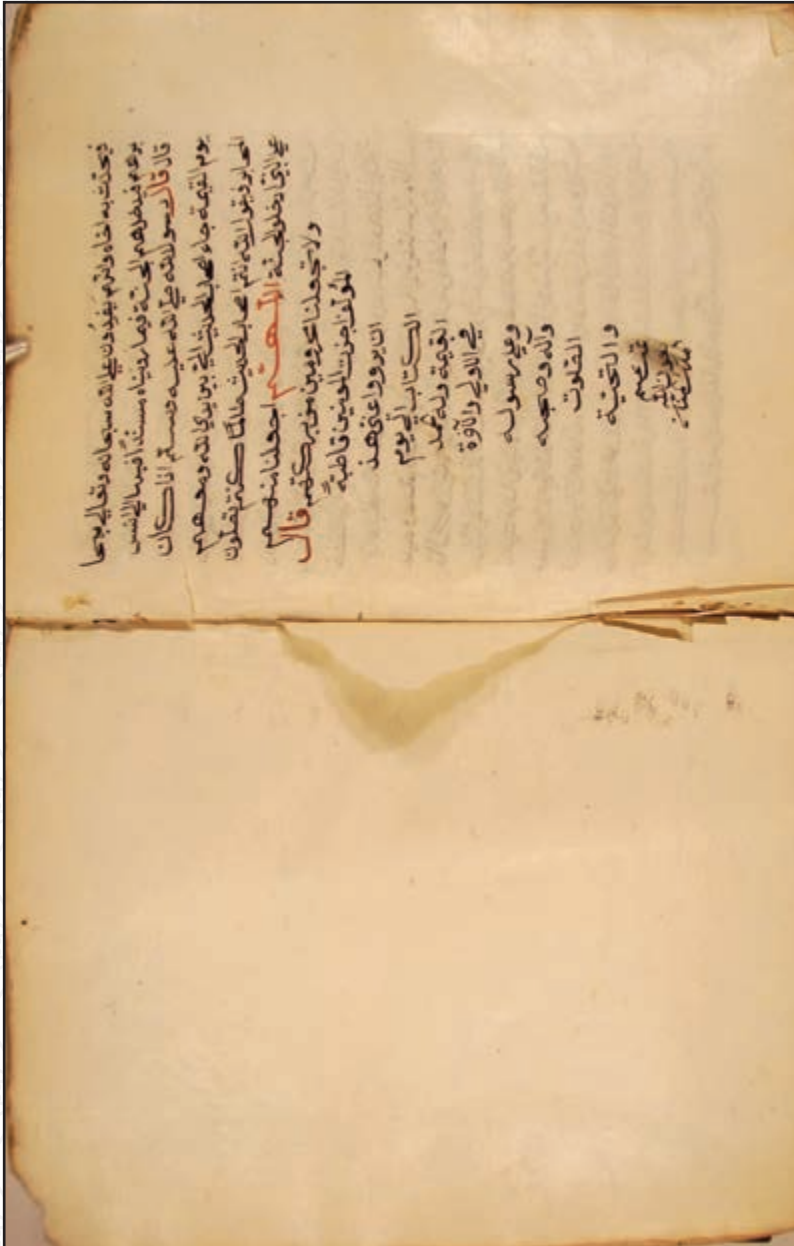 فيحدث به اخاه وانهم يفدون على الله سبحانه وتعالى يوم
فيدخلهم الجنة فيما رويناه مسندا الى انس
قال قال رسول الله صلى الله عليه وسلم اذا كان
يوم القيمة جاء اصحاب الحديث بين يدي الله ومعهم
المحابر فيقول الله انتم اصحاب الحديث طالما كنتم تصلون
على النبي ادخلوا الجنة اللهم اجعلنا منهم
ولا تجعلنا محرومين من بركتهم قال
المؤلف اجزت المؤمنين قاطبة
ان يرووا عني هذ
الكتاب الى يوم
القيمة وله الحمد
في الاولى والآخرة
وعلى رسوله
وآله وصحبه
الصلوت
والتحية
تمت